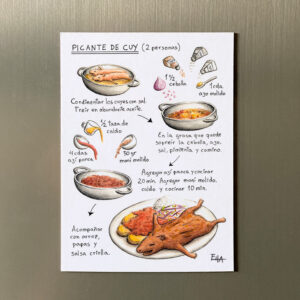 PICANTE DE CUY (2 personas)
1 ½ cebolla
1 cda. ajo molido
Condimentar los cuyes con sal.
Freír en abundante aceite.
½ taza de caldo
En la grasa que quede
sofreír la cebolla, ajo,
sal, pimienta, y comino.
4 cdas ají panca
50 gr maní molido
Agregar ají panca y cocinar
20 min. Agregar maní molido,
caldo y cocinar 10 min.
Acompañar
con arroz,
papas y
salsa criolla.